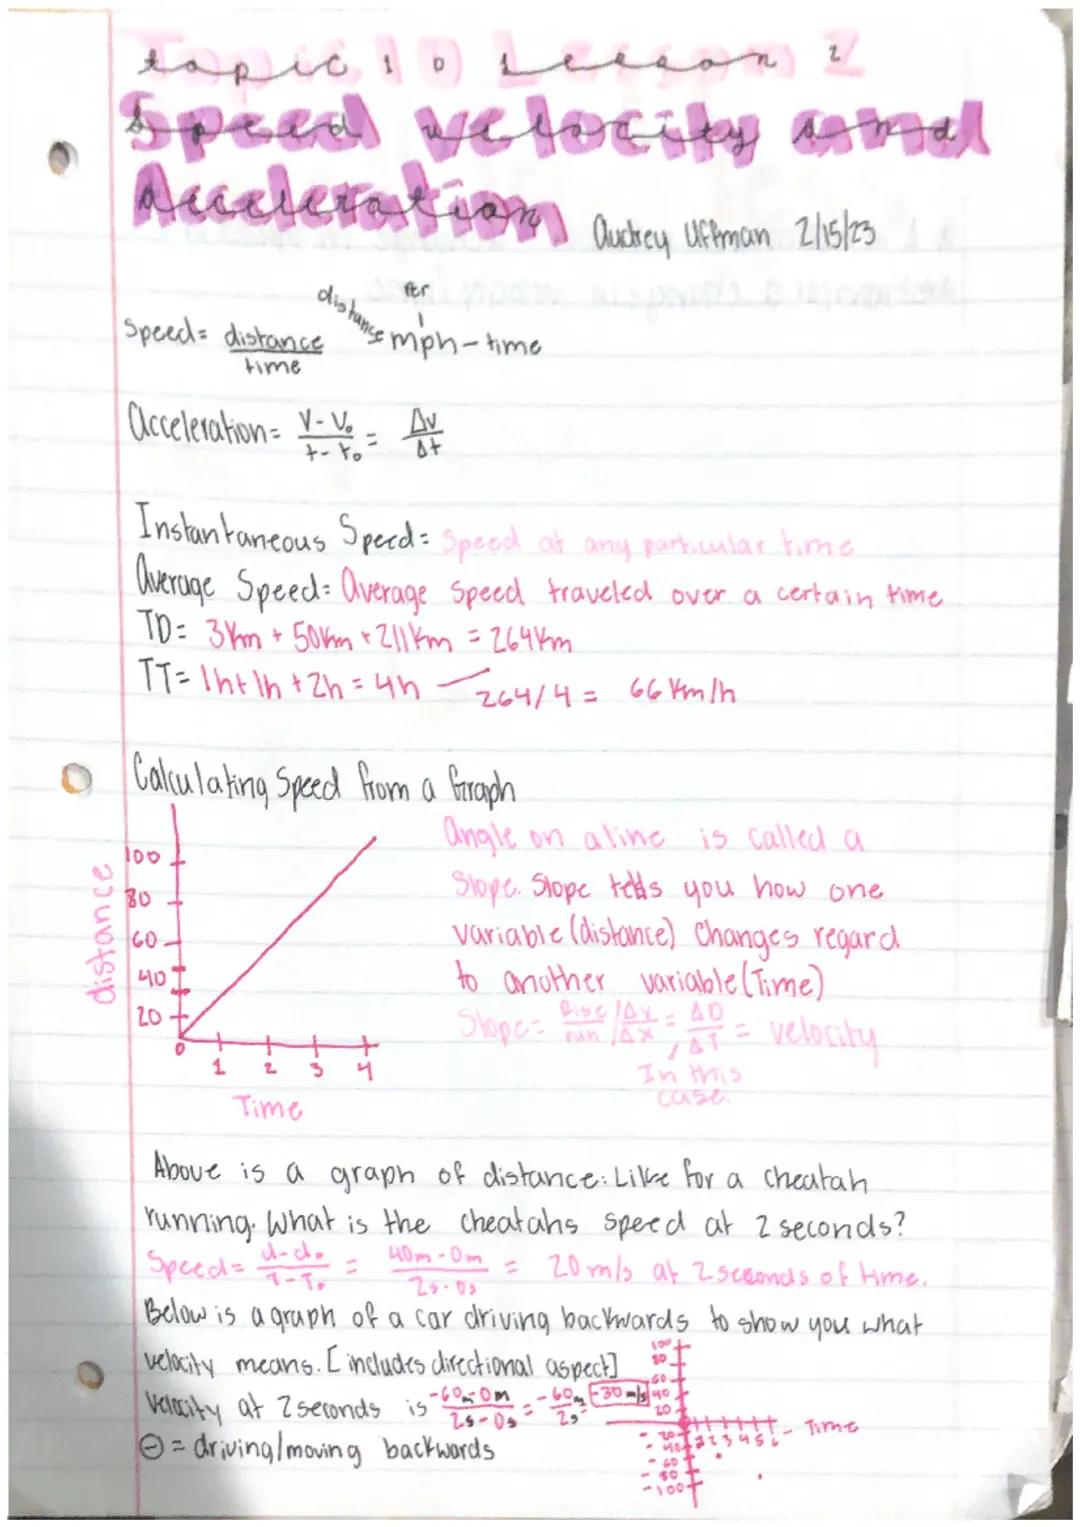 Topic 10 Lesson 2
Speed velocity and
Acceleration
Audrey Uffman 2/15/23
distance Per
Speed= distance/time mph-time
Acceleration= V-V₀/t-t₀ = Δv/Δt
Instantaneous Speed= Speed at any particular time
Average Speed= Average Speed traveled over a certain time
TD= 3Km + 50Km + 211Km = 264Km
TT= 1h+1h+2h=4h — 264/4= 66 Km/h
Calculating Speed from a Graph
distance
100
80
60
40
20
0
1 2 3 4
Time
Angle on a line is called a
Slope. Slope tells you how one
variable (distance) Changes regard
to another variable (Time)
Slope= Rise/run / Δy/Δx = ΔD/ΔT = velocity
In this
case.
Above is a graph of distance. Like for a cheatah
running. What is the cheatahs speed at 2 seconds?
Speed= d-d₀/T-T₀ = 40m-0m/2s-0s = 20m/s at 2 seconds of time.
Below is a graph of a car driving backwards to show you what
velocity means. [includes directional aspect]
Velocity at 2 seconds is -60m-0m/2s-0s = -60m/2s = -30m/s
⊖ = driving/moving backwards
100
80
60
40
20
1 2 3 4 5 6 - Time
-20
-40
-60
-80
-100